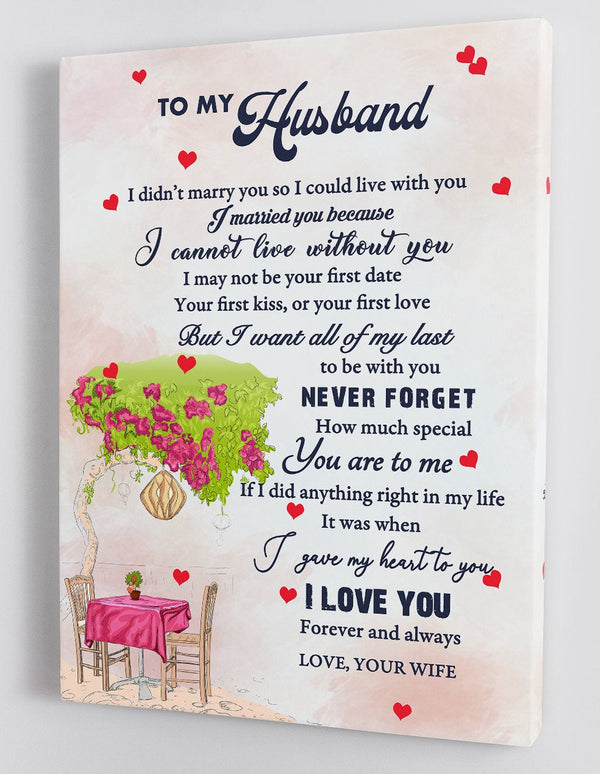 TO MY Husband
I didn't marry you so I could live with you
I married you because
I cannot live without you
I may not be your first date
Your first kiss, or your first love
But I want all of my last
to be with you
NEVER FORGET
How much special
You are to me
If I did anything right in my life
It was when
I gave my heart to you
I LOVE YOU
Forever and always
LOVE, YOUR WIFE